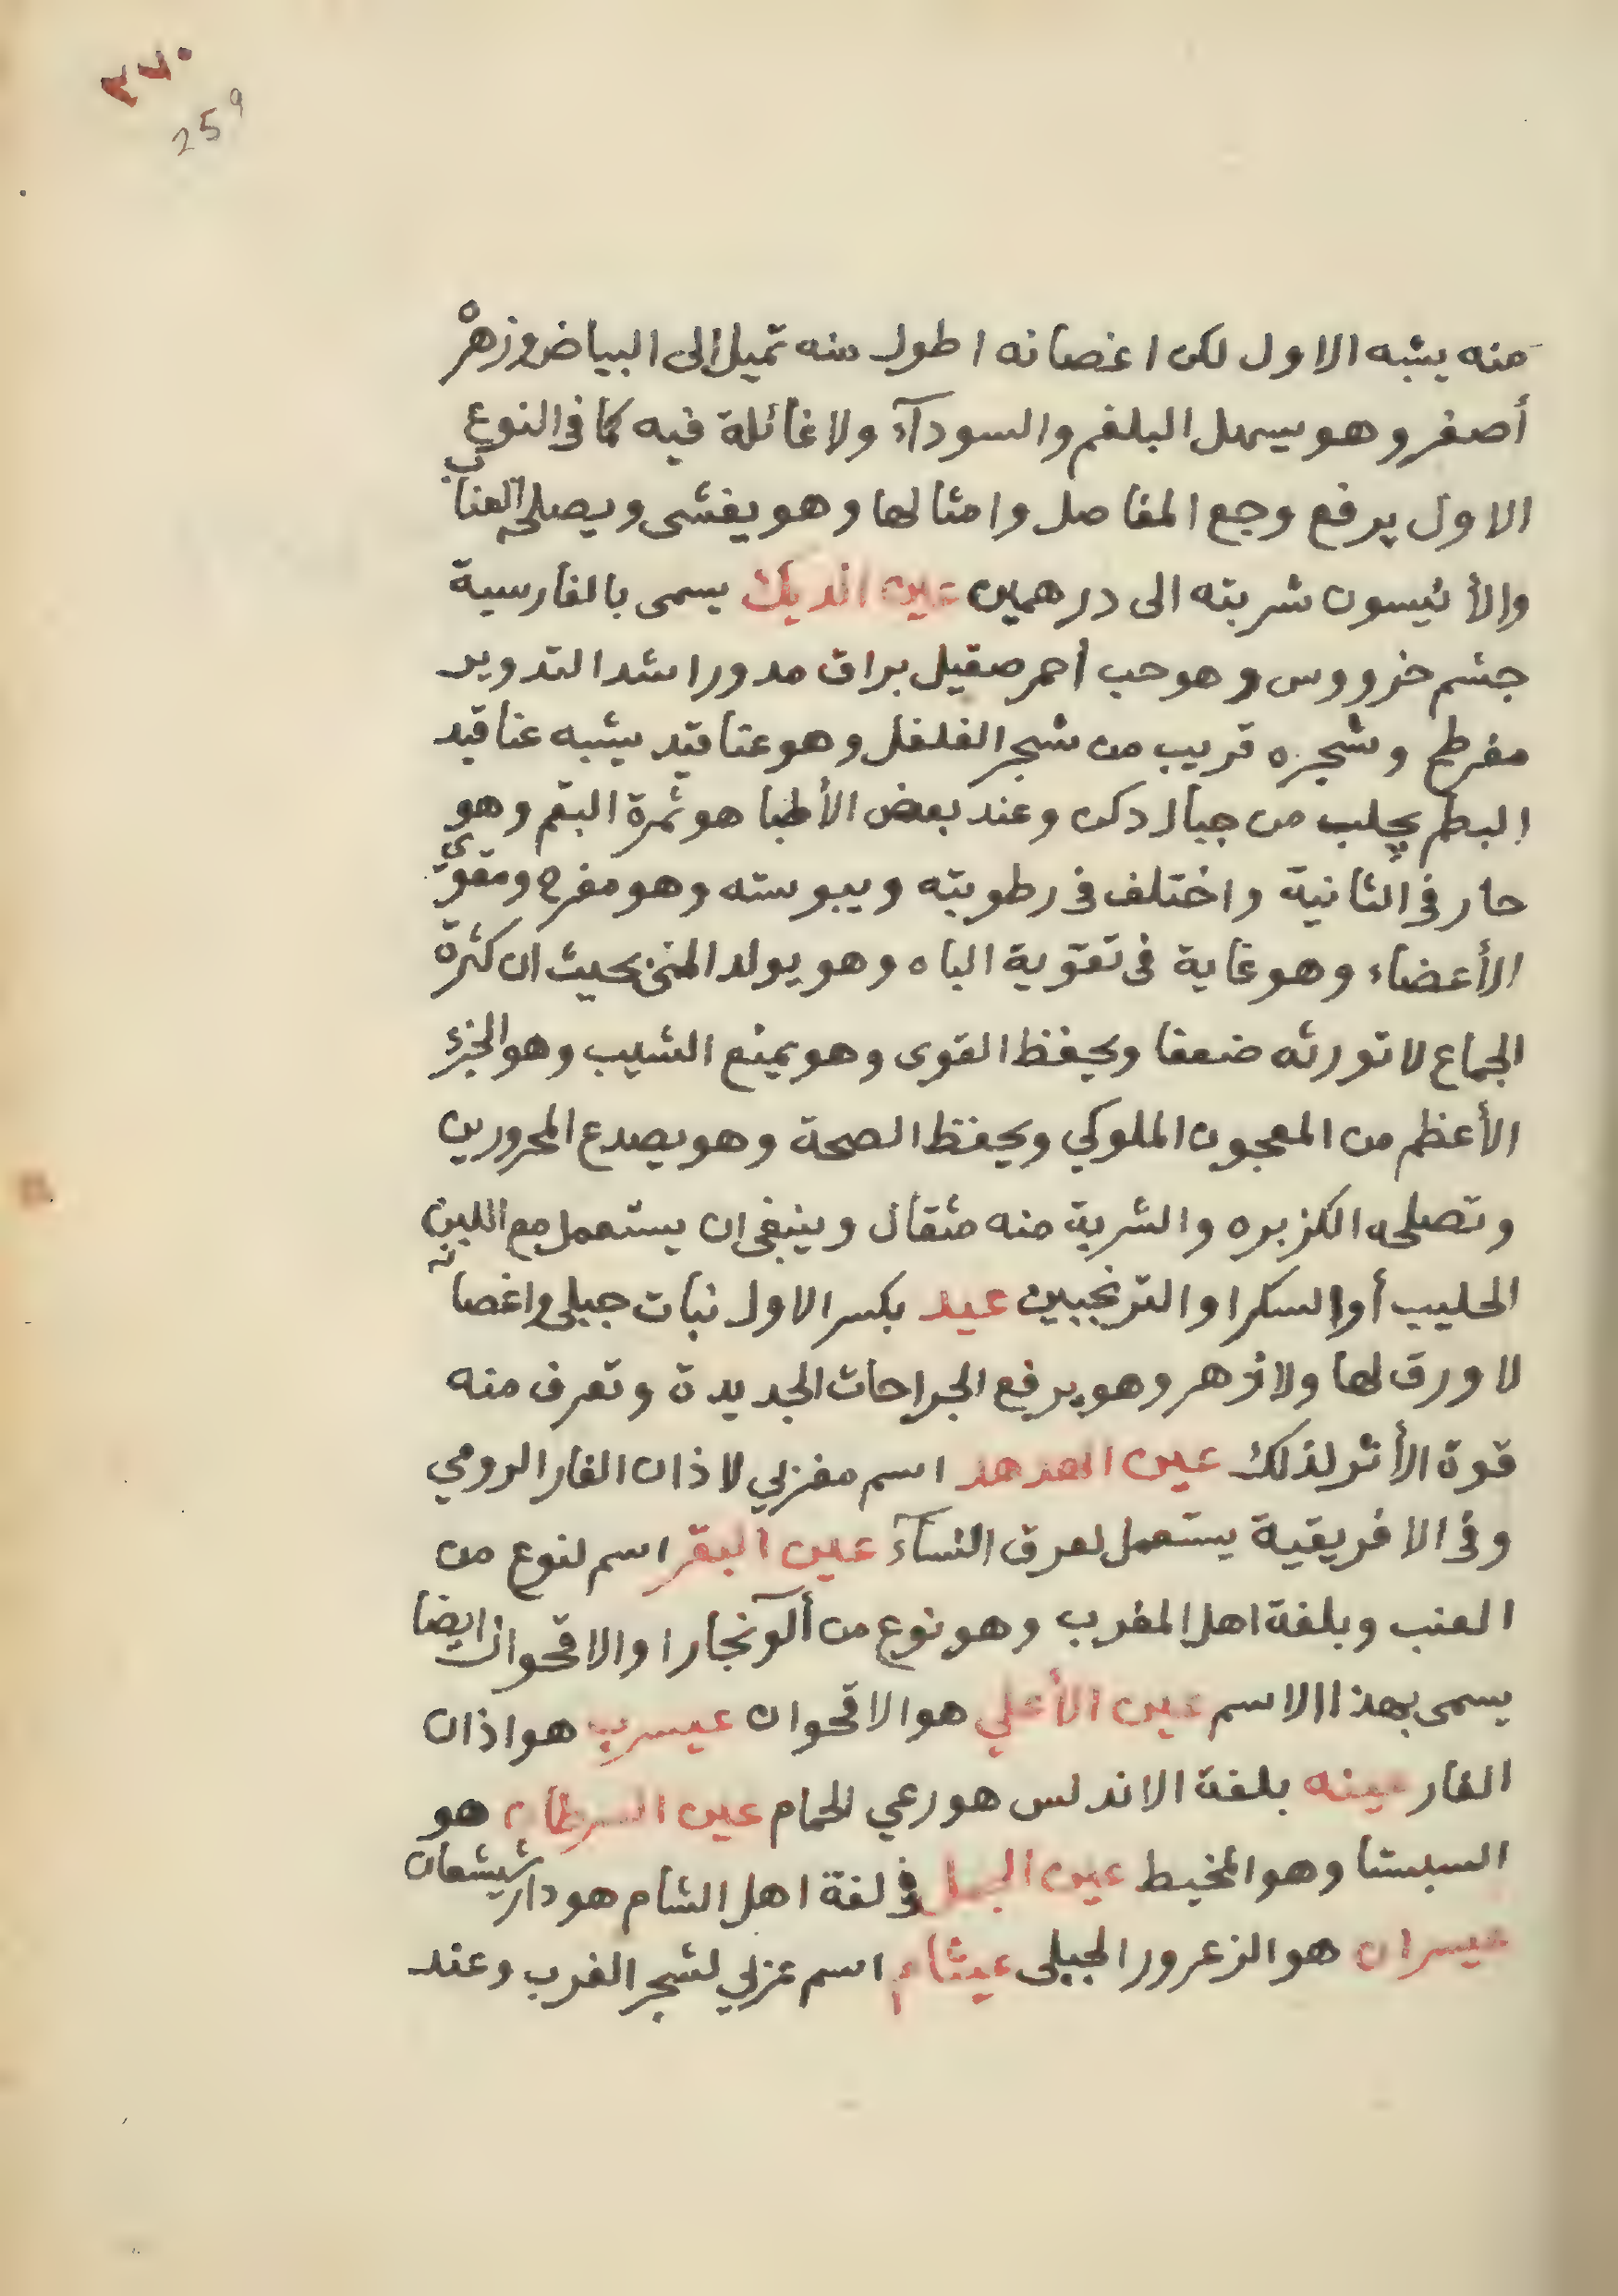 ٣٧٠
259
منه يشبه الاول لكن اغصانه اطول منه تميل الى البياض وزهره
أصفر وهو يسهل البلغم والسودآء ولا غائلة فيه كما فى النوع
الاول يرفع وجع المفاصل وامثالها وهو يغشى ويصلحه العناب
والأنيسون شربته الى درهمين عين الديك يسمى بالفارسية
جشم خرووس وهو حب أحمر صقيل براق مدور اشد التدوير
مفرطح وشجره قريب من شجر الفلفل وهو عناقيد يشبه عناقيد
البطم يجلب من جبال دكن وعند بعض الأطبا هو ثمرة البقم وهو
حار فى الثانية واختلف فى رطوبته ويبوسته وهو مفرح ومقوّي
الأعضاء وهو غاية فى تقوية الباه وهو يولد المنى بحيث ان كثرة
الجماع لا تورثه ضعفا ويحفظ القوى وهو يمنع الشيب وهو الجزء
الأعظم من المعجون الملوكي ويحفظ الصحة وهو يصدع المحرورين
وتصلحه الكزبره والشربة منه مثقال وينبغى ان يستعمل مع اللبن
الحليب أو السكر او الترنجبين عيد بكسر الاول نبات جبلى واغصانه
لا ورق لها ولا زهر وهو يرفع الجراحات الجديدة وتعرف منه
قوة الأثر لذلك عين الهدهد اسم مغربي لاذان الفار الرومي
وفى الافريقية يستعمل لعرق النسآء عين البقر اسم لنوع من
العنب وبلغة اهل المغرب وهو نوع من ألوبخارا والاقحوان ايضا
يسمى بهذا الاسم عين الأعلي هو الاقحوان عيسرب هو اذان
الفار عينه بلغة الاندلس هو رعي الحمام عين السرطان هو
السبستا وهو المخيط عين الجمل فى لغة اهل الشام هو دارشيشعان
عيسران هو الزعرور الجبلى عيثام اسم عربي لشجر الغرب وعند